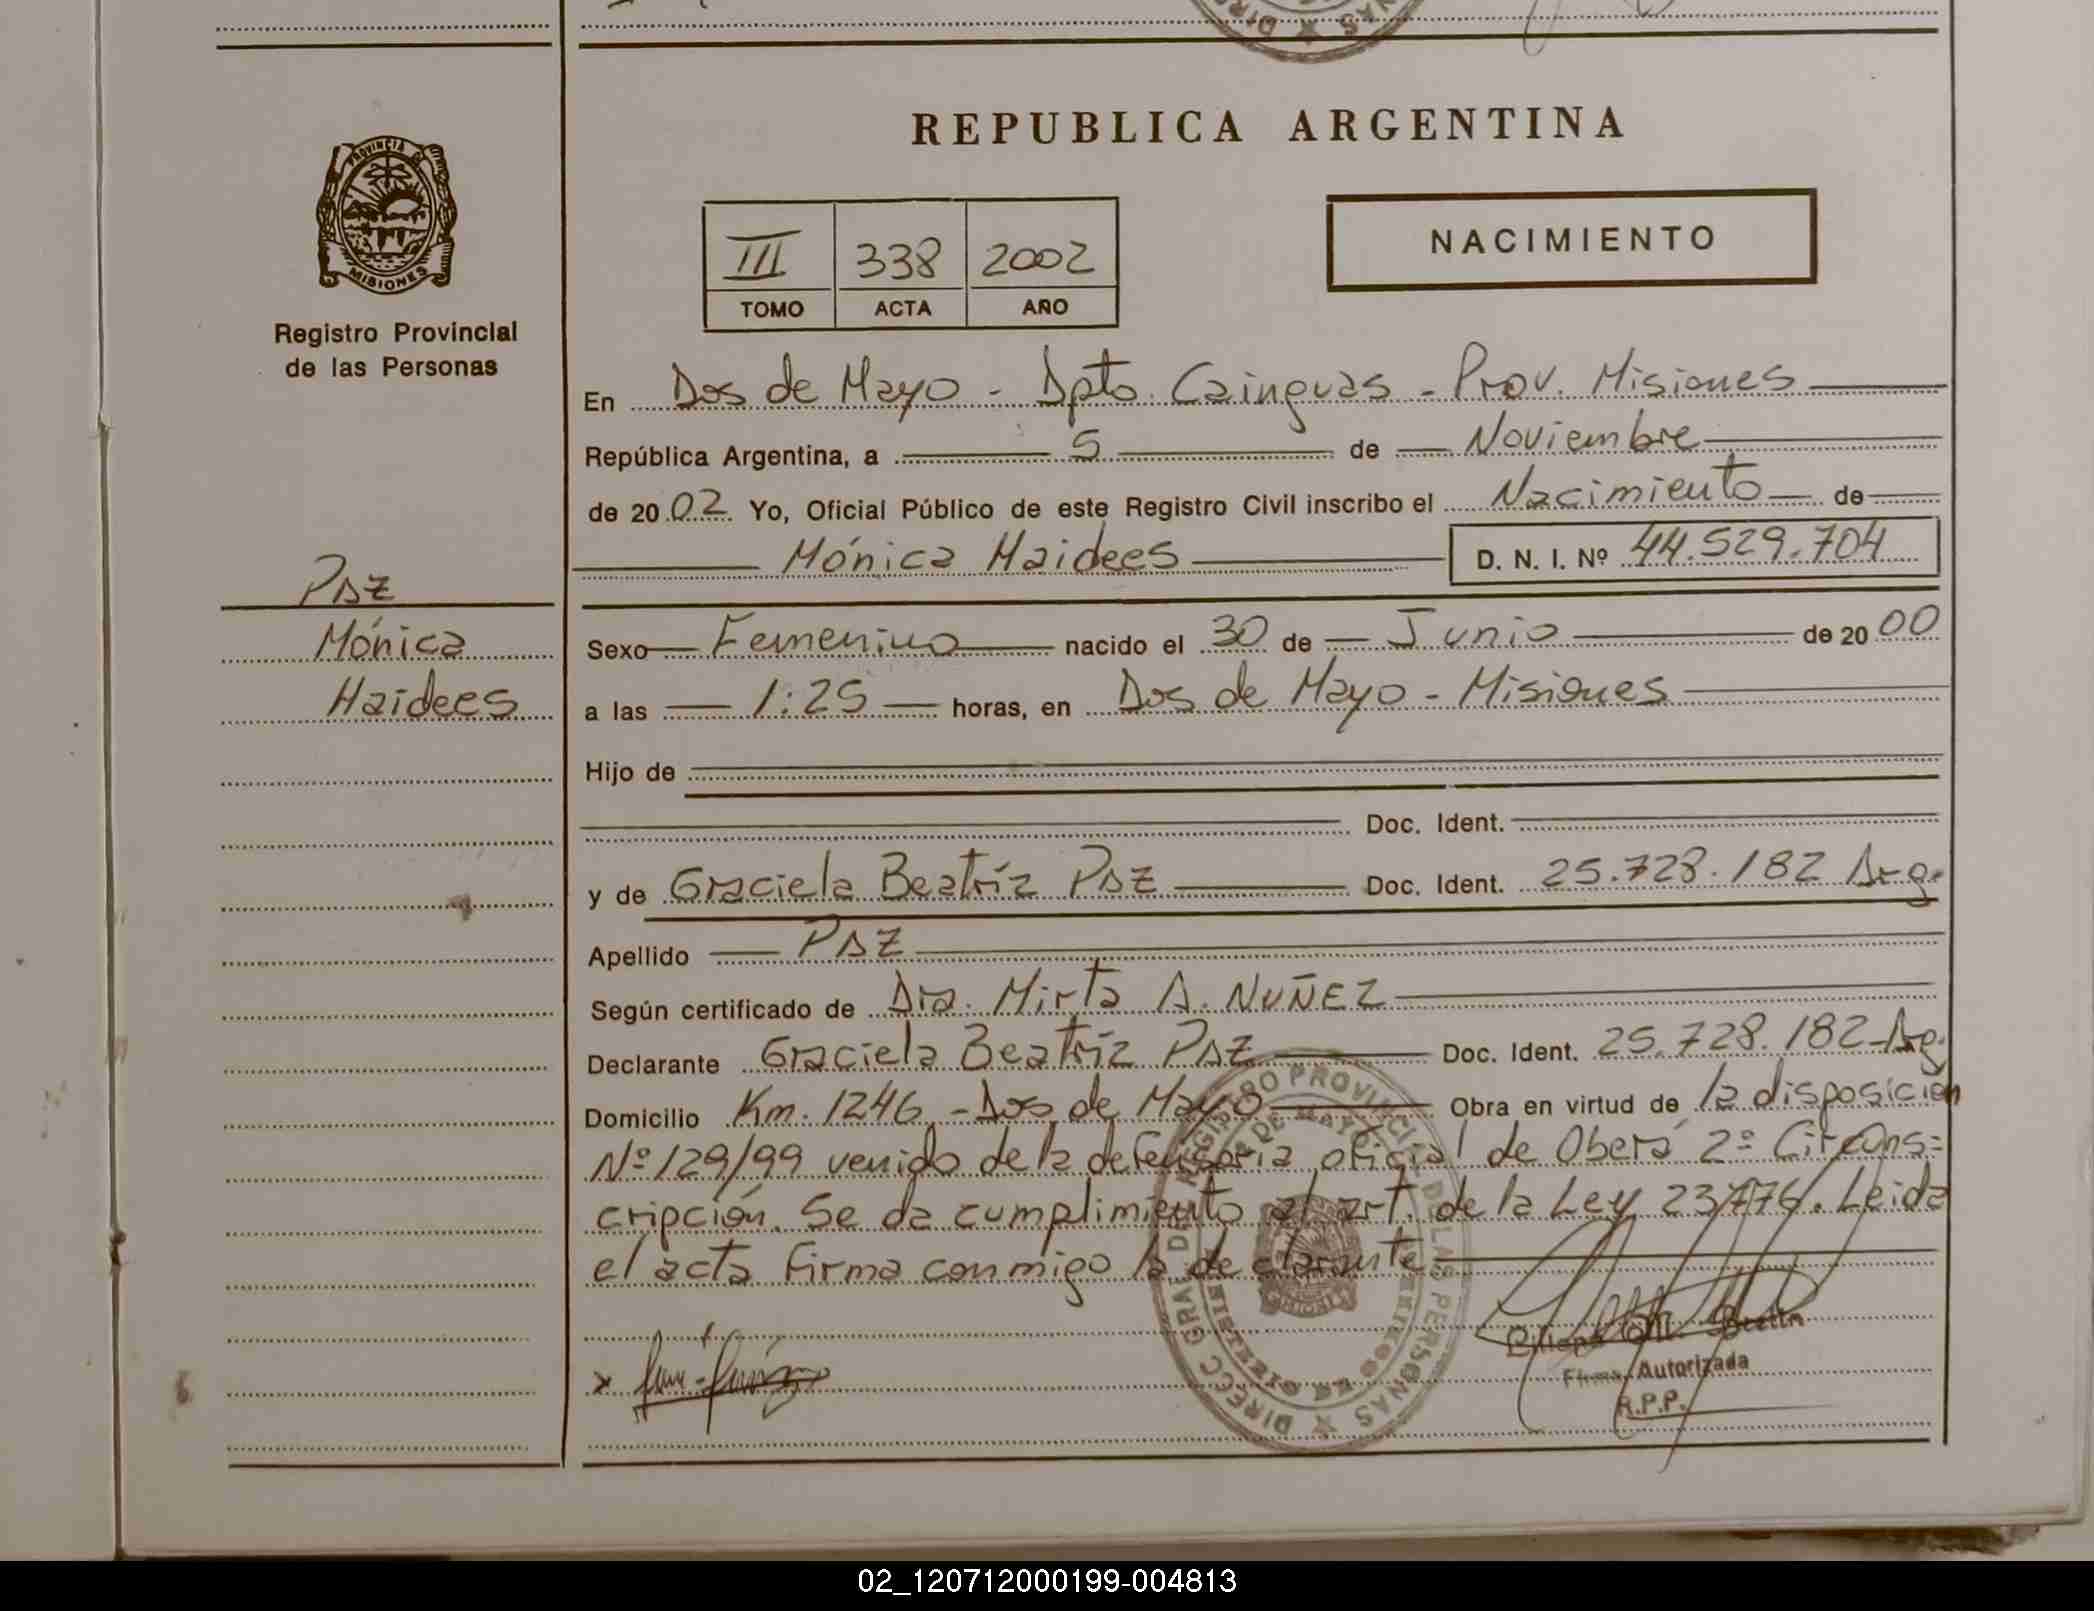 REPUBLICA ARGENTINA
PROVINCIA DE
MISIONES
Registro Provincial
de las Personas
III 338 2002
TOMO ACTA AÑO
NACIMIENTO
En Dos de Mayo - Dpto. Cainguas - Prov. Misiones
República Argentina, a 5 de Noviembre
de 2002 Yo, Oficial Público de este Registro Civil inscribo el Nacimiento de
Mónica Haidees D. N. I. Nº 44.529.704
Paz
Mónica
Haidees
Sexo Femenino nacido el 30 de Junio de 2000
a las 1:25 horas, en Dos de Mayo - Misiones
Hijo de
Doc. Ident.
y de Graciela Beatríz Paz Doc. Ident. 25.728.182 Arg.
Apellido Paz
Según certificado de Dra. Mirta A. NUÑEZ
Declarante Graciela Beatríz Paz Doc. Ident. 25.728.182 Arg.
Domicilio Km. 1246 - Dos de Mayo Obra en virtud de la disposición
Nº 129/99 venido de la defensoría oficial de Oberá 2º Circuns=
cripción. Se da cumplimiento al art. de la Ley 23776. Leida
el acta firma conmigo la declarante
Firma Autorizada
R.P.P.
02_120712000199-004813